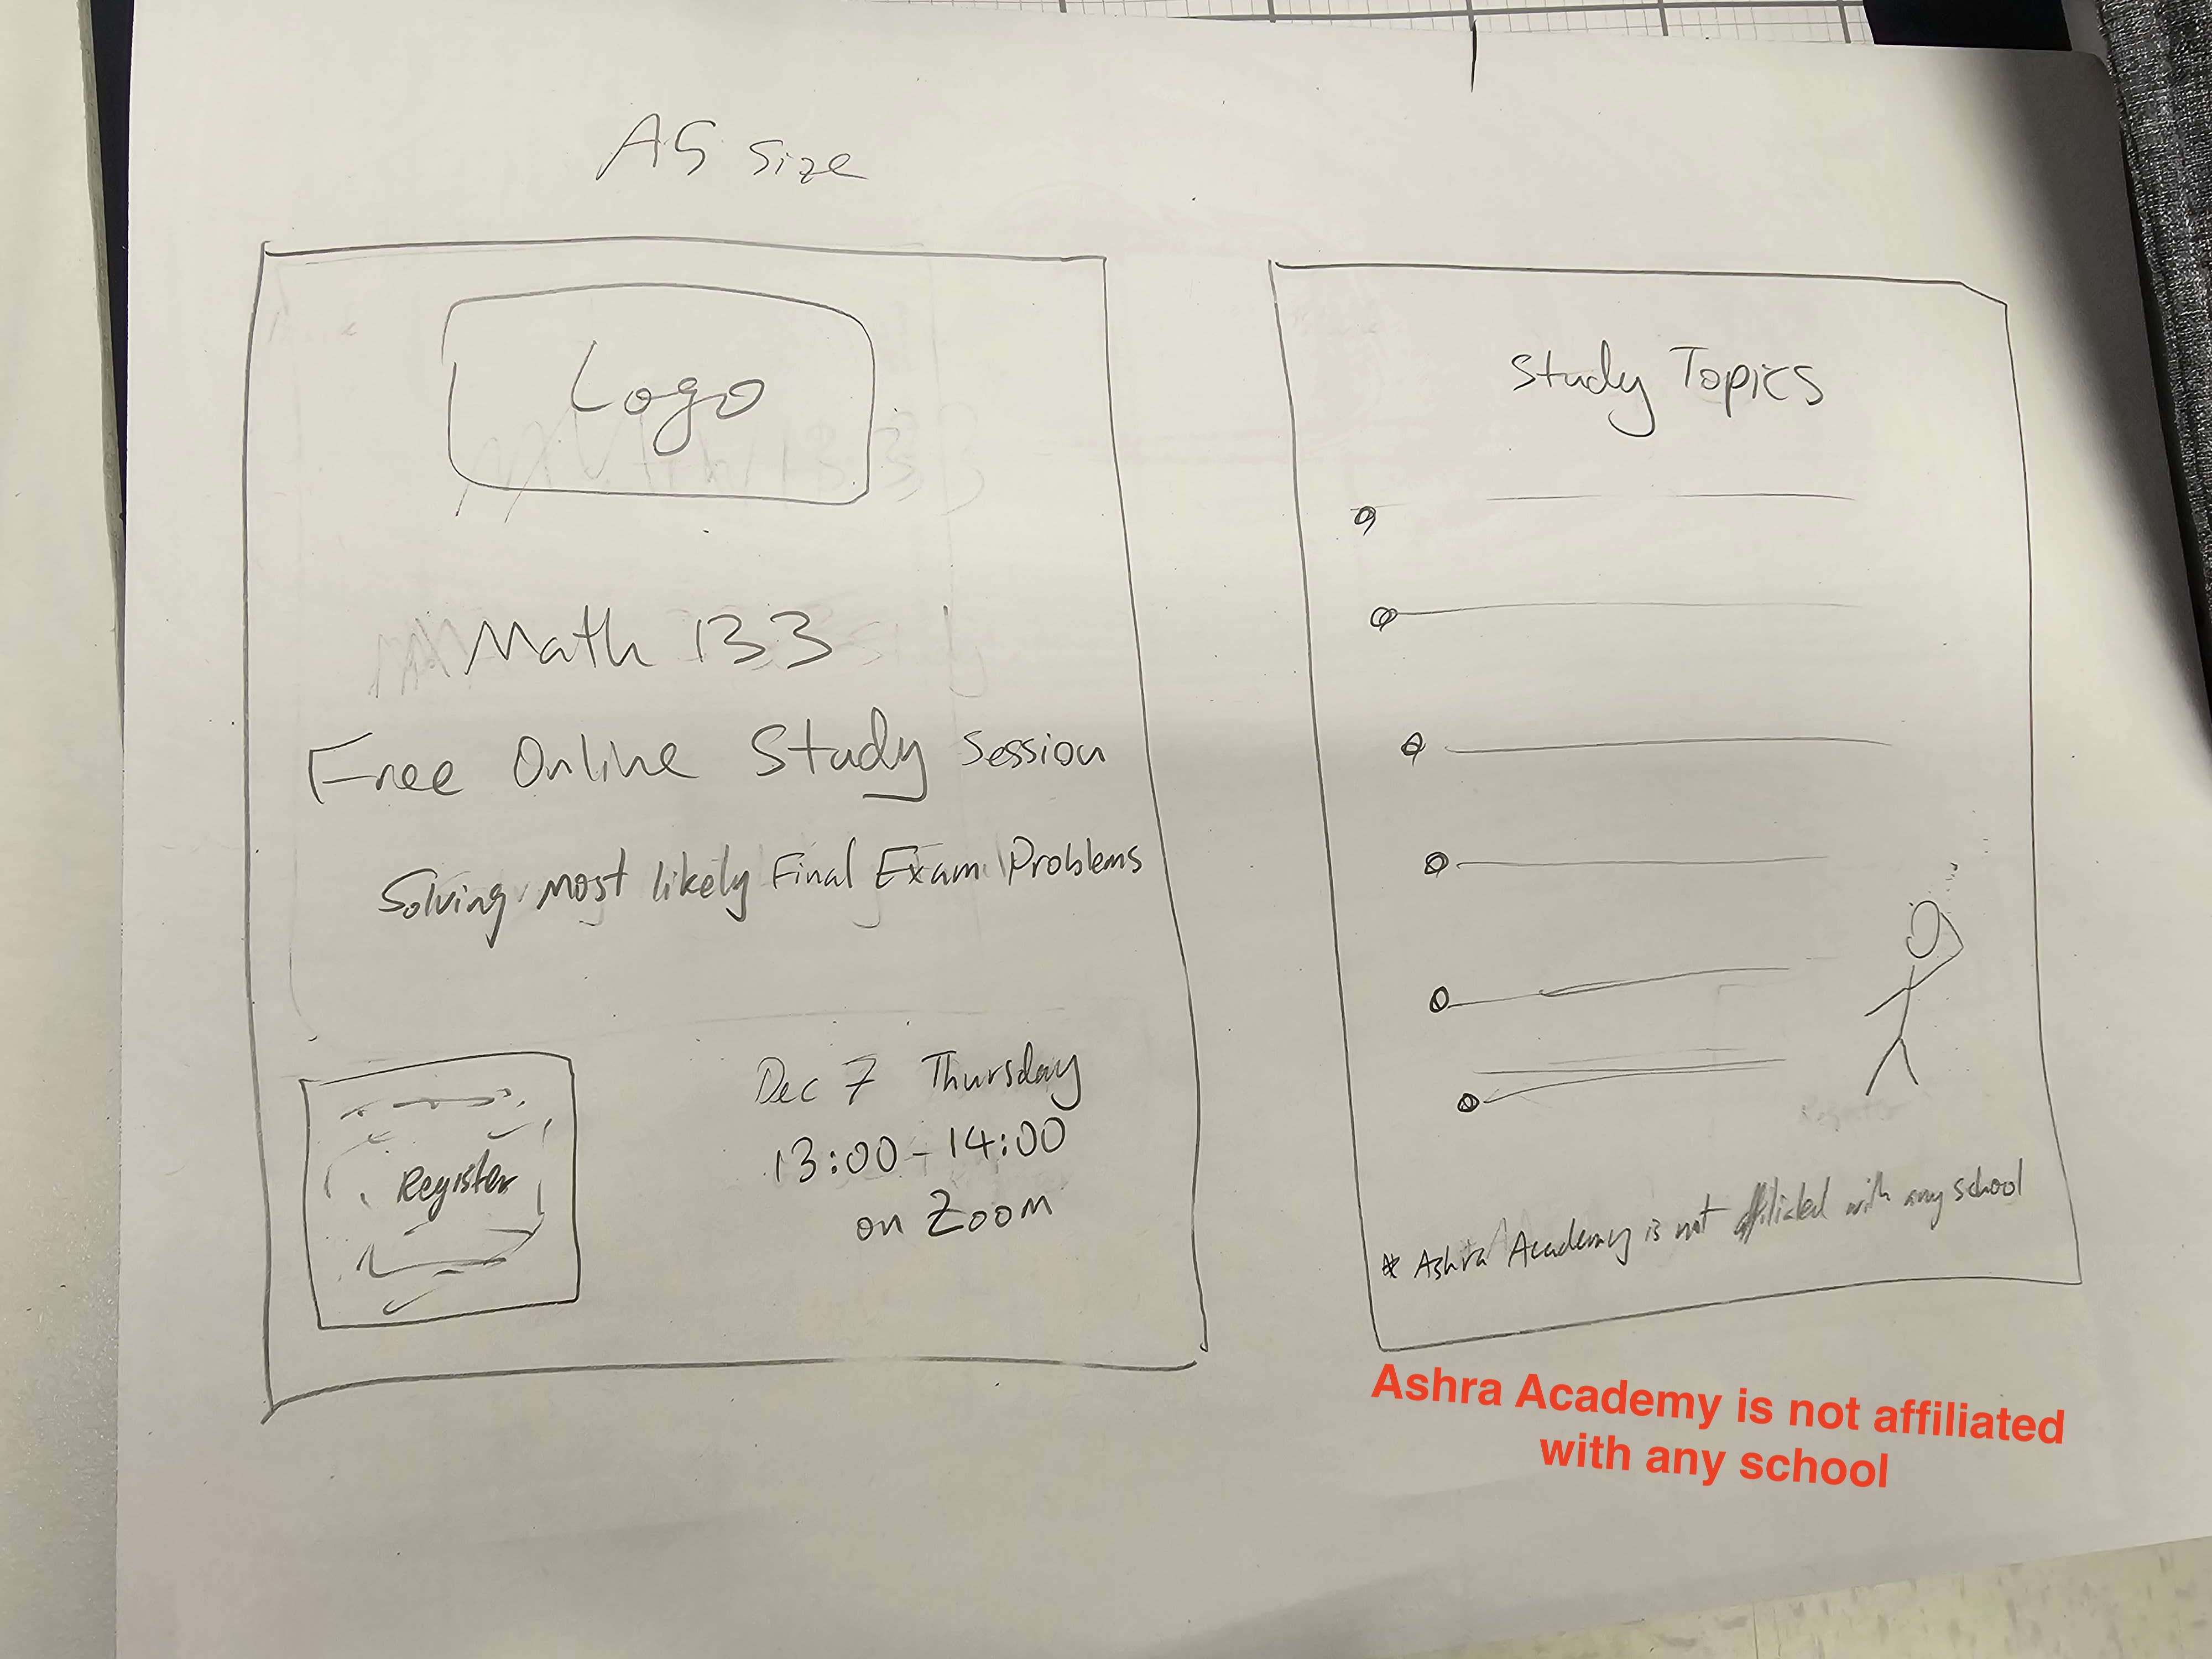 A5 size
Logo
Math 133
Free Online Study Session
Solving most likely Final Exam Problems
Register
Dec 7 Thursday
13:00 - 14:00
on Zoom
Study Topics
* Ashra Academy is not affiliated with any school
Ashra Academy is not affiliated
with any school